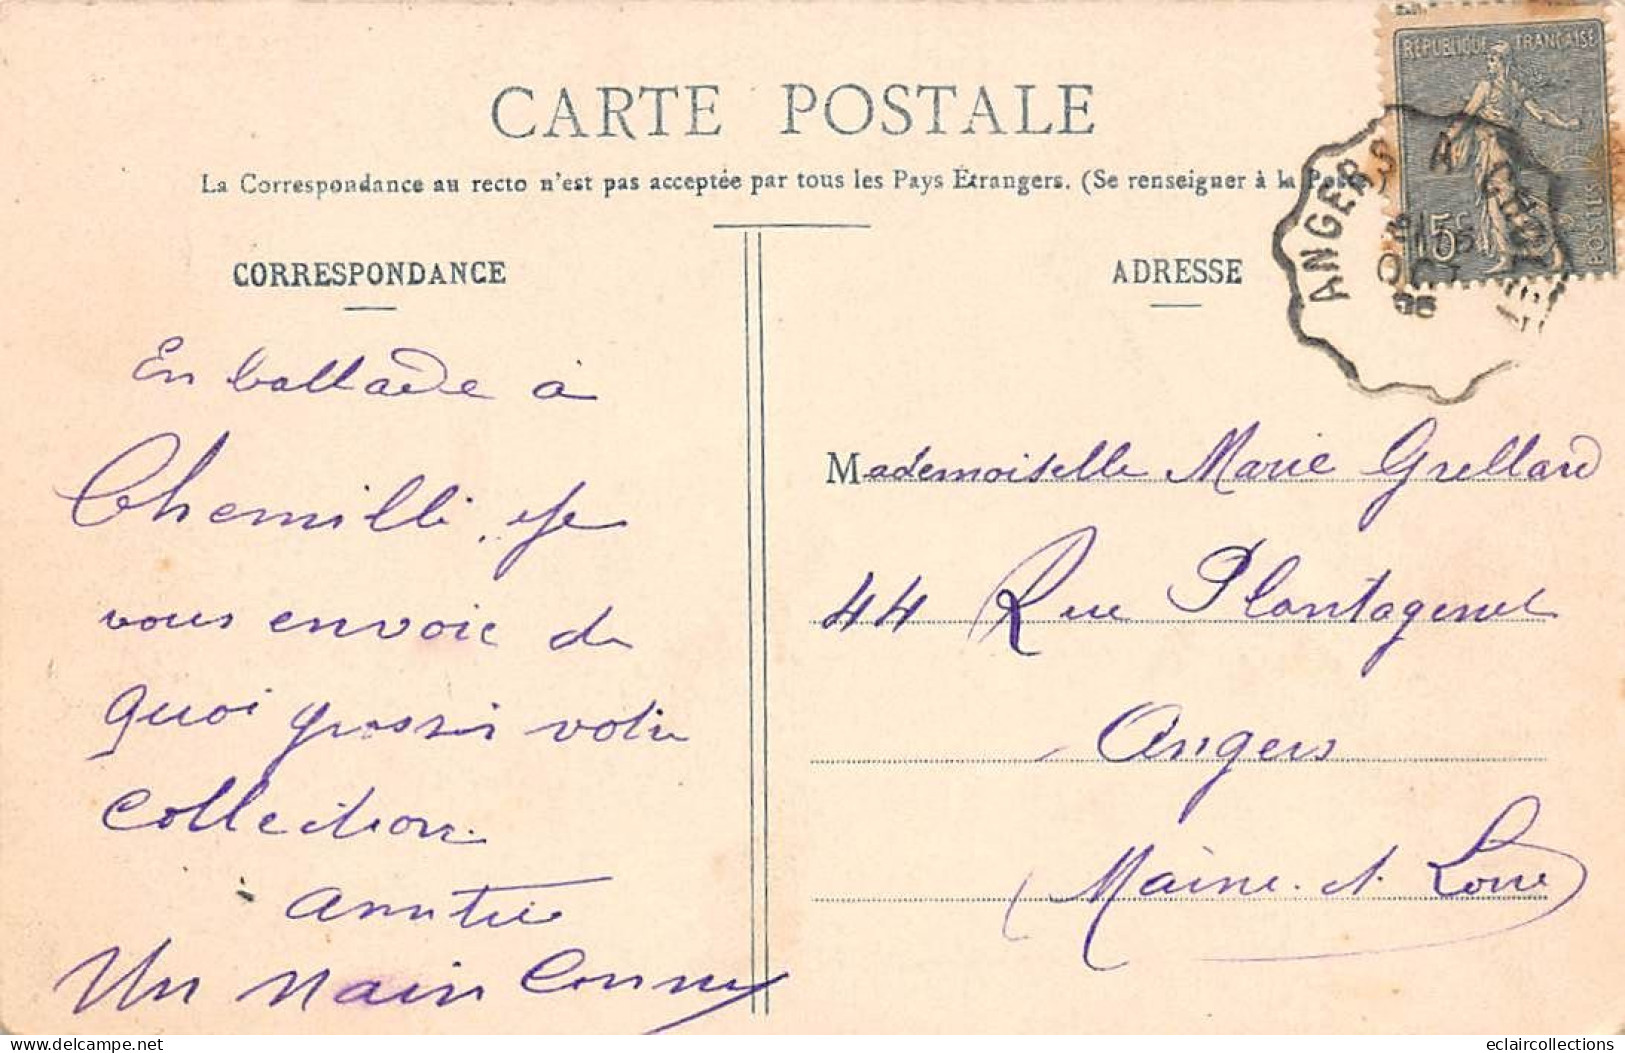 CARTE POSTALE
La Correspondance au recto n'est pas acceptée par tous les Pays Étrangers. (Se renseigner à la Poste)
RÉPUBLIQUE FRANÇAISE
15c
POSTES
ANGERS A
OCT
CORRESPONDANCE
ADRESSE
En ballade à
Chemillé, je
vous envoie de
quoi grossir votre
collection
amitié
Un nain connu
Mademoiselle Marie Grellard
44 Rue Plantagenet
Angers
Maine et Loire
delcampe.net
eclaircollections